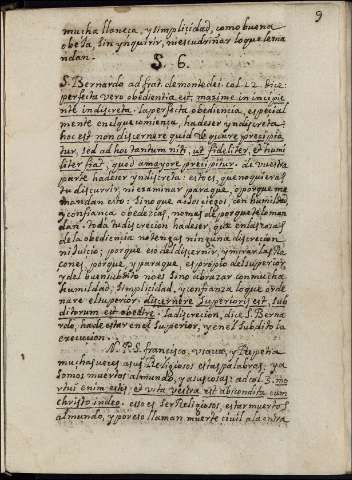 9
mucha llaneça, y simplicidad, como buena
obeja, sin ynquirir, ni escudriñar lo que le man
dan.
§. 6.
S. Bernardo ad frat. de monte dei. col. 22. dice:
perfecta vero obedientia est, maxime in incipie
nte indiscreta. la perfecta obediencia, espeçial
mente en el que comiença, ha de ser yndiscreta:
hoc est non discernere quid vel quare precipia
tur, sed ad hoc tantum niti, ut fideliter, et humi
liter fiat, quod a mayore precipitur. de vuestra
parte ha de ser yndiscreta: esto es, que no quieras
tu discurrir, ni examinar para que, o por que me
mandan esto: sino que a ojos ciegos con humildad
y confiança obedezcas, no mas de por que te lo man
dan. toda tu discrecion ha de ser, que en las cosas
de la obediencia no tengas ninguna discrecion
ni Juicio; porque eso del discernir, y mirar las Ra
çones, porque, y para que, es propio del superior
y del buen subdito no es sino abrazar con mucha
humildad, simplicidad, y confianza lo que orde
nare el superior. discernere Superioris est, sub
ditorum est obedire. la discrecion, dice S. Berna
rdo, ha de estar en el superior, y en el subdito la
execucion.
N. P. S. francisco, usaba, y Repetia
muchas veces a sus Religiosos estas palabras: ya
somos muertos al mundo, y a sus cosas: ad col. 3. mo
rtui enim estis, et vita vestra est abscondita cum
christo in deo. eso es ser Religiosos, estar muertos
al mundo, y por eso llaman muerte civil a la entra